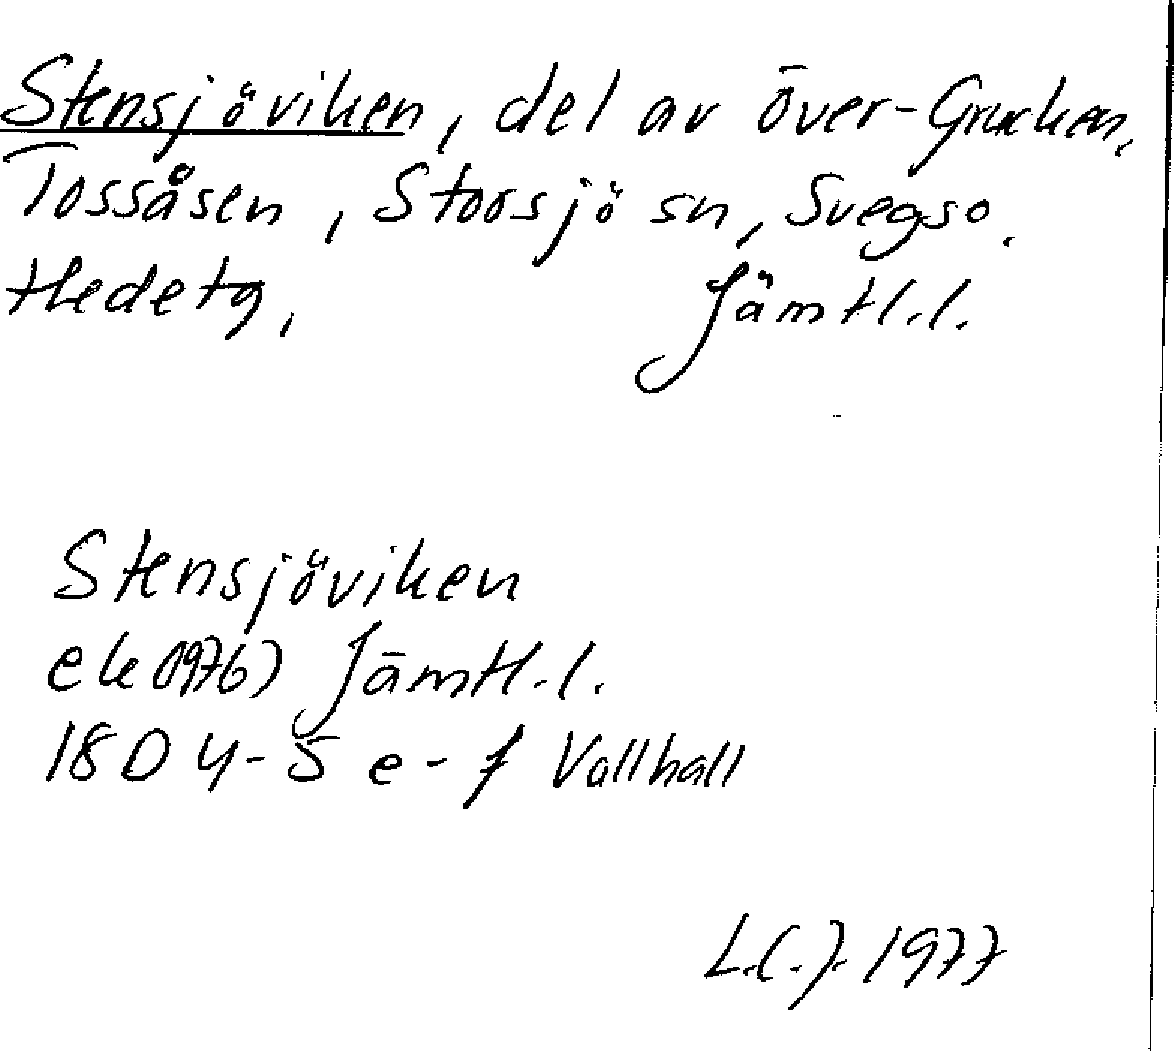 Stensjöviken, del av Över-Grucken,
Tossåsen, Storsjö sn, Svegs o.
Hede tg, Jämtl.l.
Stensjöviken
ek (1976) Jämtl.l.
18D 4-5 e-f Vallhall
L.C.J. 1977